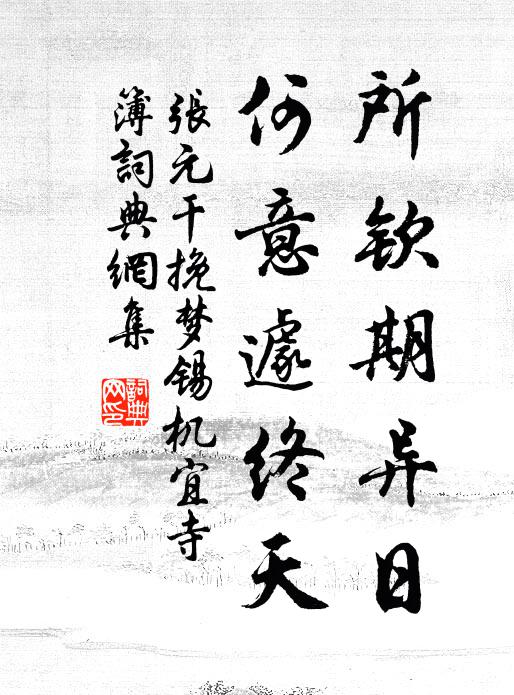 所欽期异日
何意遽終天
張元干挽梦锡机宜寺
簿詞典網集
詞典网印